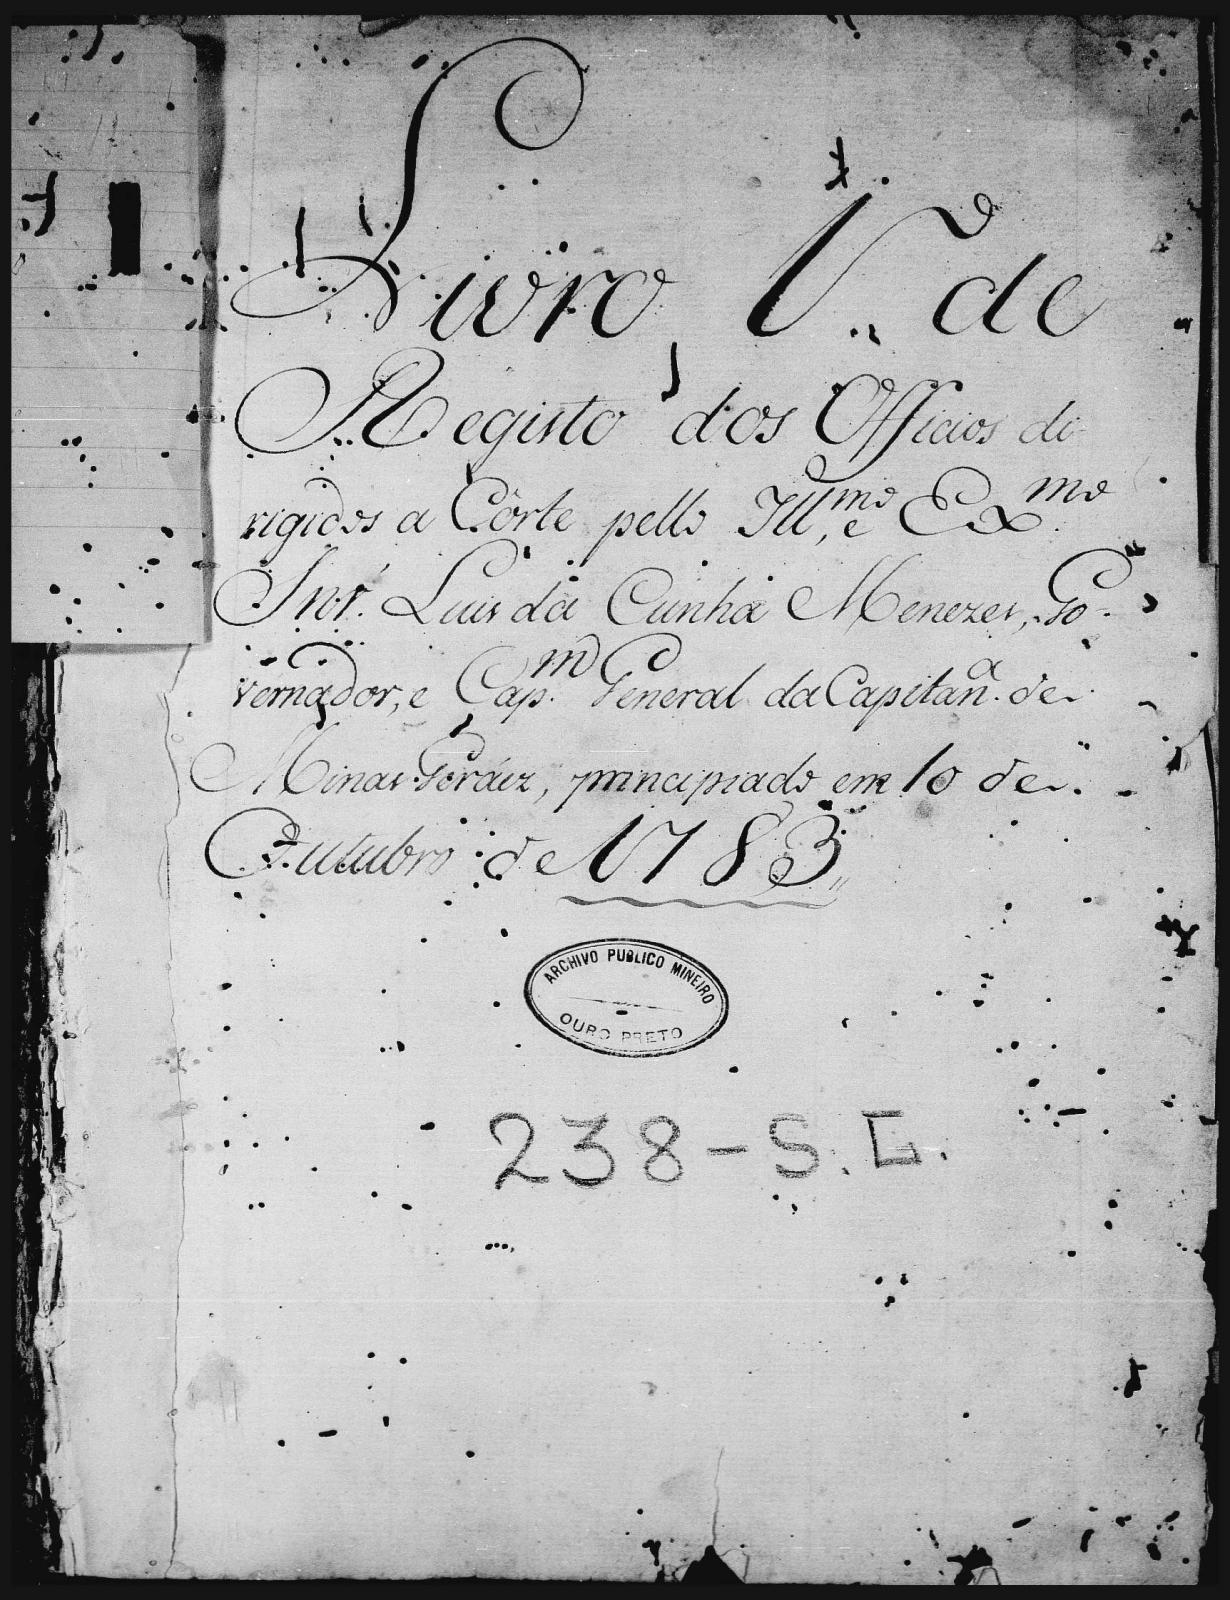 Livro 1.º de
Registo dos Officios di-
rigidos a Côrte pello Ill.mo, e Ex.mo
Snr. Luis da Cunha Menezes, Go-
vernador, e Cap.m General da Capitan.a de
Minas Geráez, principiado em 10 de
Outubro de 1783
ARCHIVO PUBLICO MINEIRO
OURO PRETO
238-S.G.